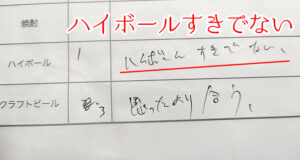 ハイボールすきでない
焼酎
ハイボール 1 すきでない、
クラフトビール 3 思ったより合う。